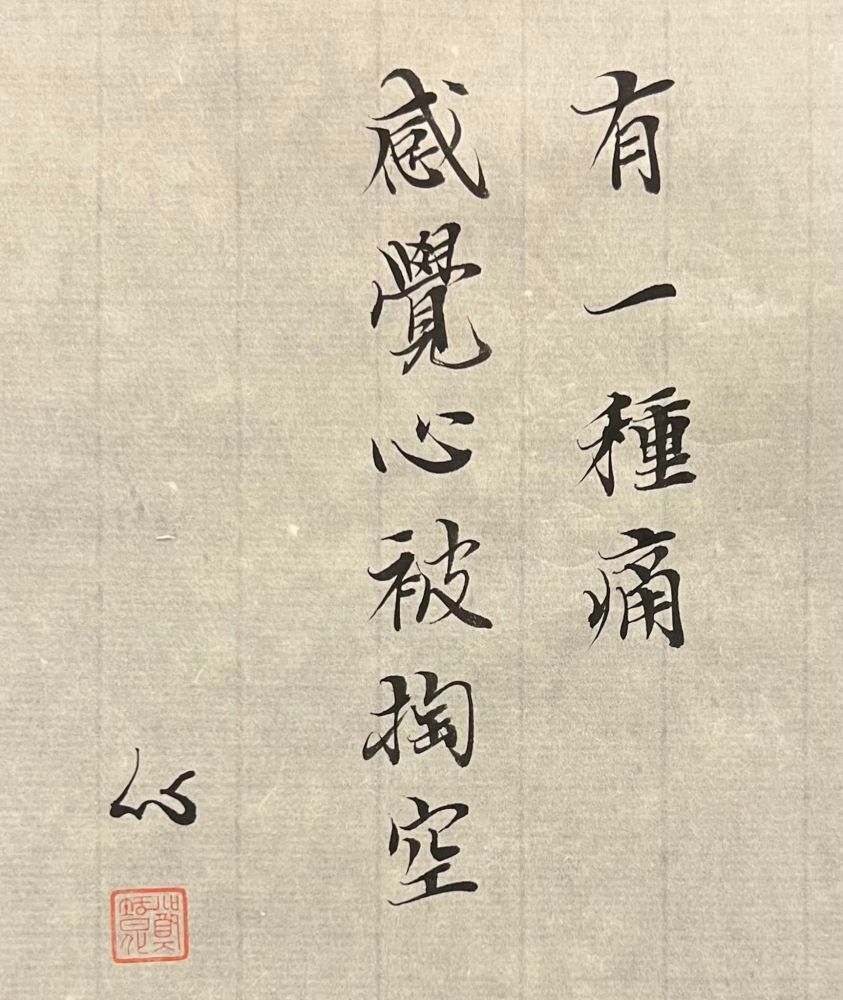 有一種痛
感覺心被掏空